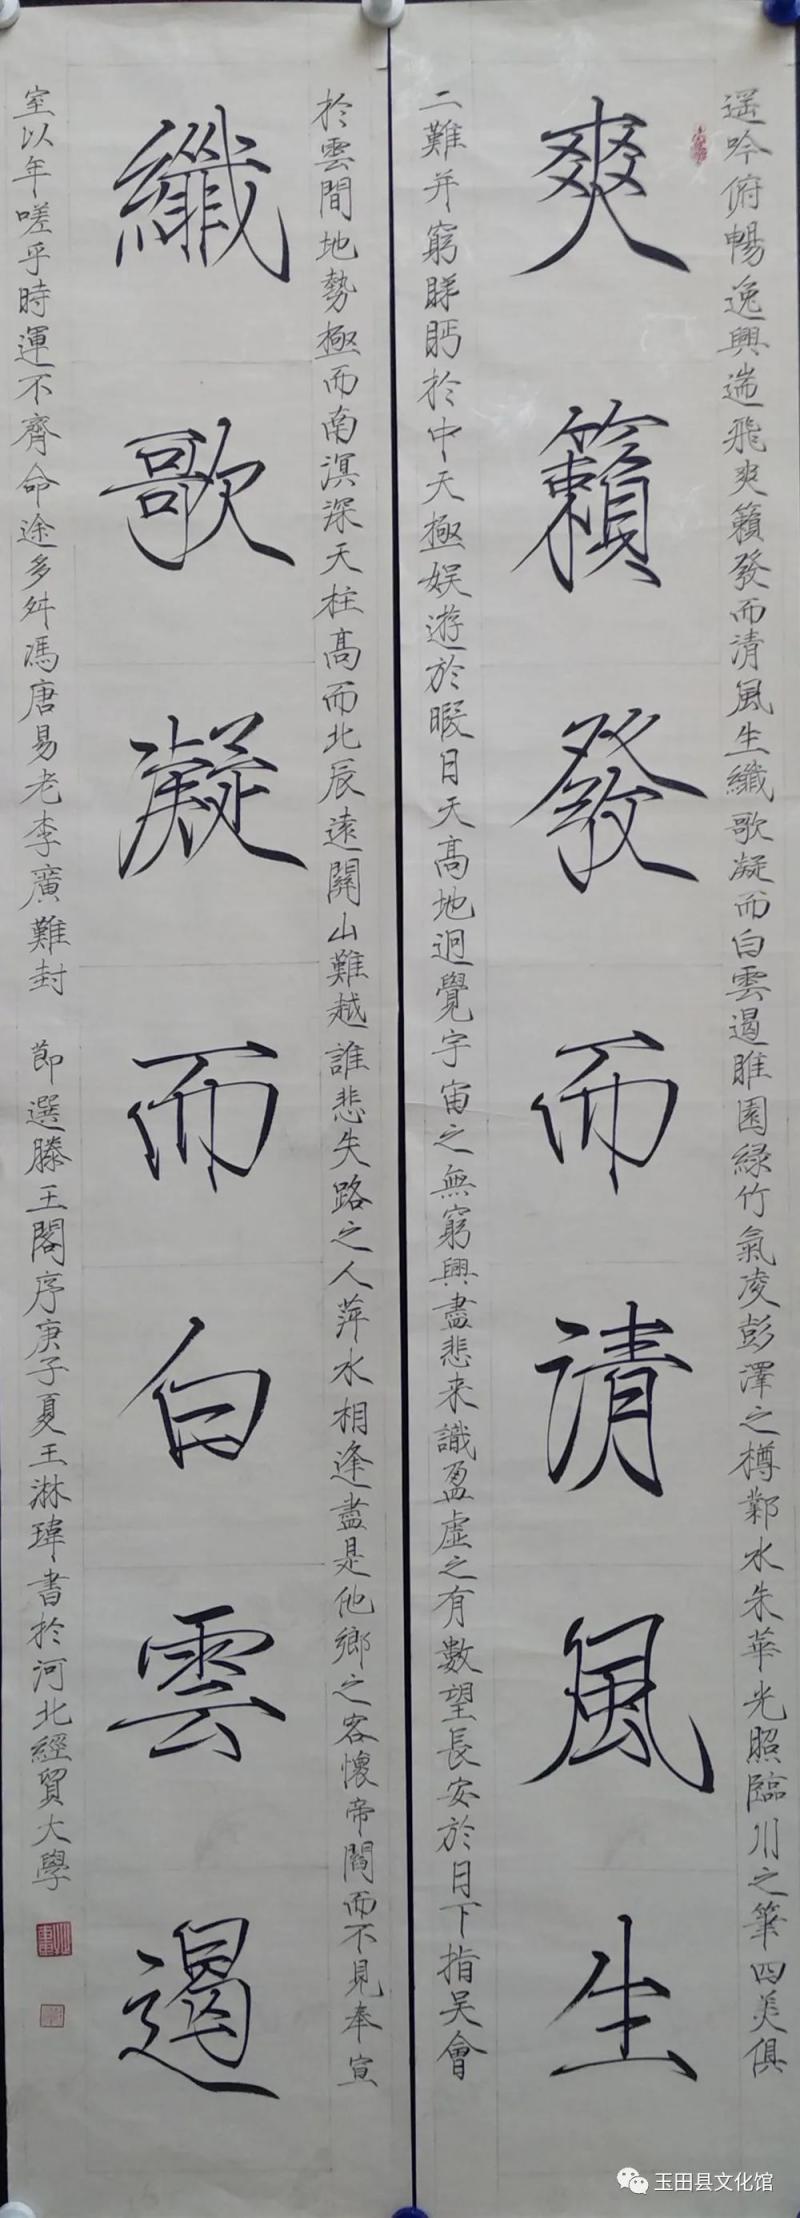 爽籟發而清風生
纖歌凝而白雲遏
遥吟俯暢逸興遄飛爽籟發而清風生纖歌凝而白雲遏睢園緑竹氣凌彭澤之樽鄴水朱華光照臨川之筆四美俱
二難并窮睇眄於中天極娱遊於暇日天高地迥覺宇宙之無窮興盡悲来識盈虛之有數望長安於日下指吴會
於雲間地勢極而南溟深天柱高而北辰遠關山難越誰悲失路之人萍水相逢盡是他鄉之客懷帝閽而不見奉宣
室以年嗟乎時運不齊命途多舛馮唐易老李廣難封 節選滕王閣序庚子夏王淋瑋書於河北經貿大學
玉田县文化馆